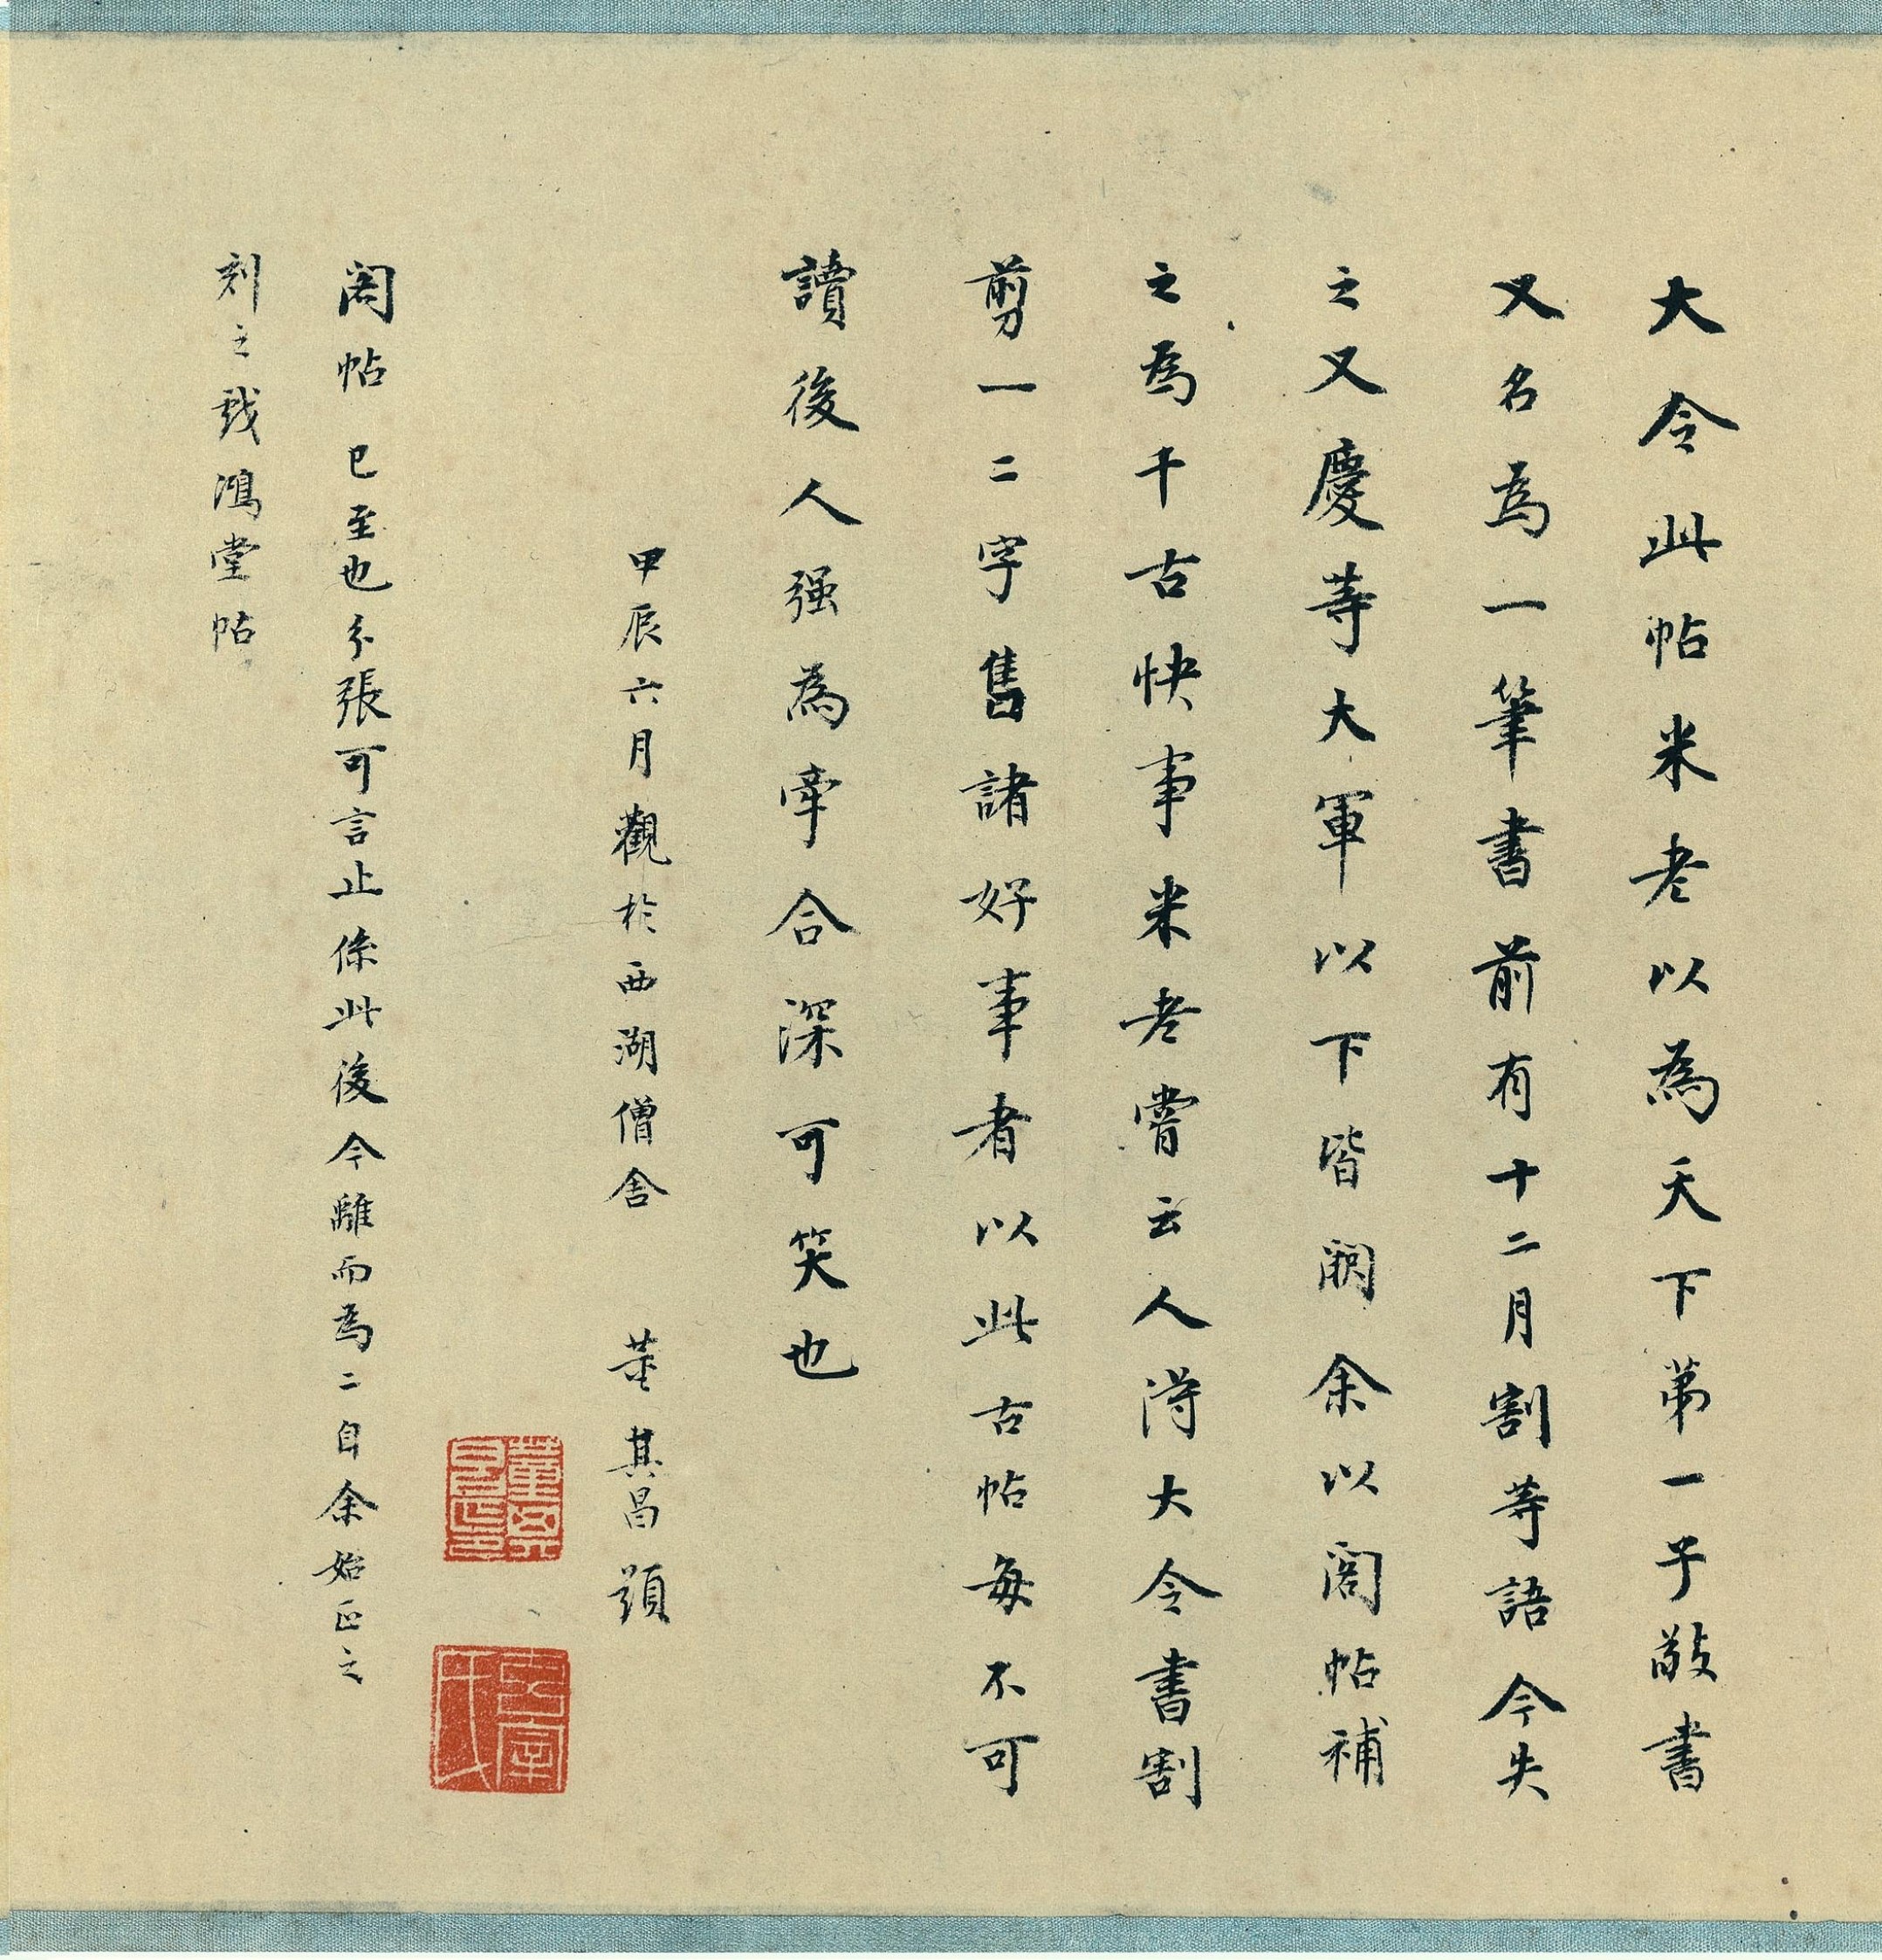 大令此帖米老以為天下第一子敬書
又名為一筆書前有十二月割等語今失
之又慶等大軍以下皆闕余以閣帖補
之為千古快事米老嘗云人得大令書割
剪一二字售諸好事者以此古帖每不可
讀後人强為牽合深可笑也
甲辰六月觀於西湖僧舍 董其昌題
閣帖已至也分張可言止係此後今離而為二自余始正之
刻之戲鴻堂帖
董其昌印
玄宰氏